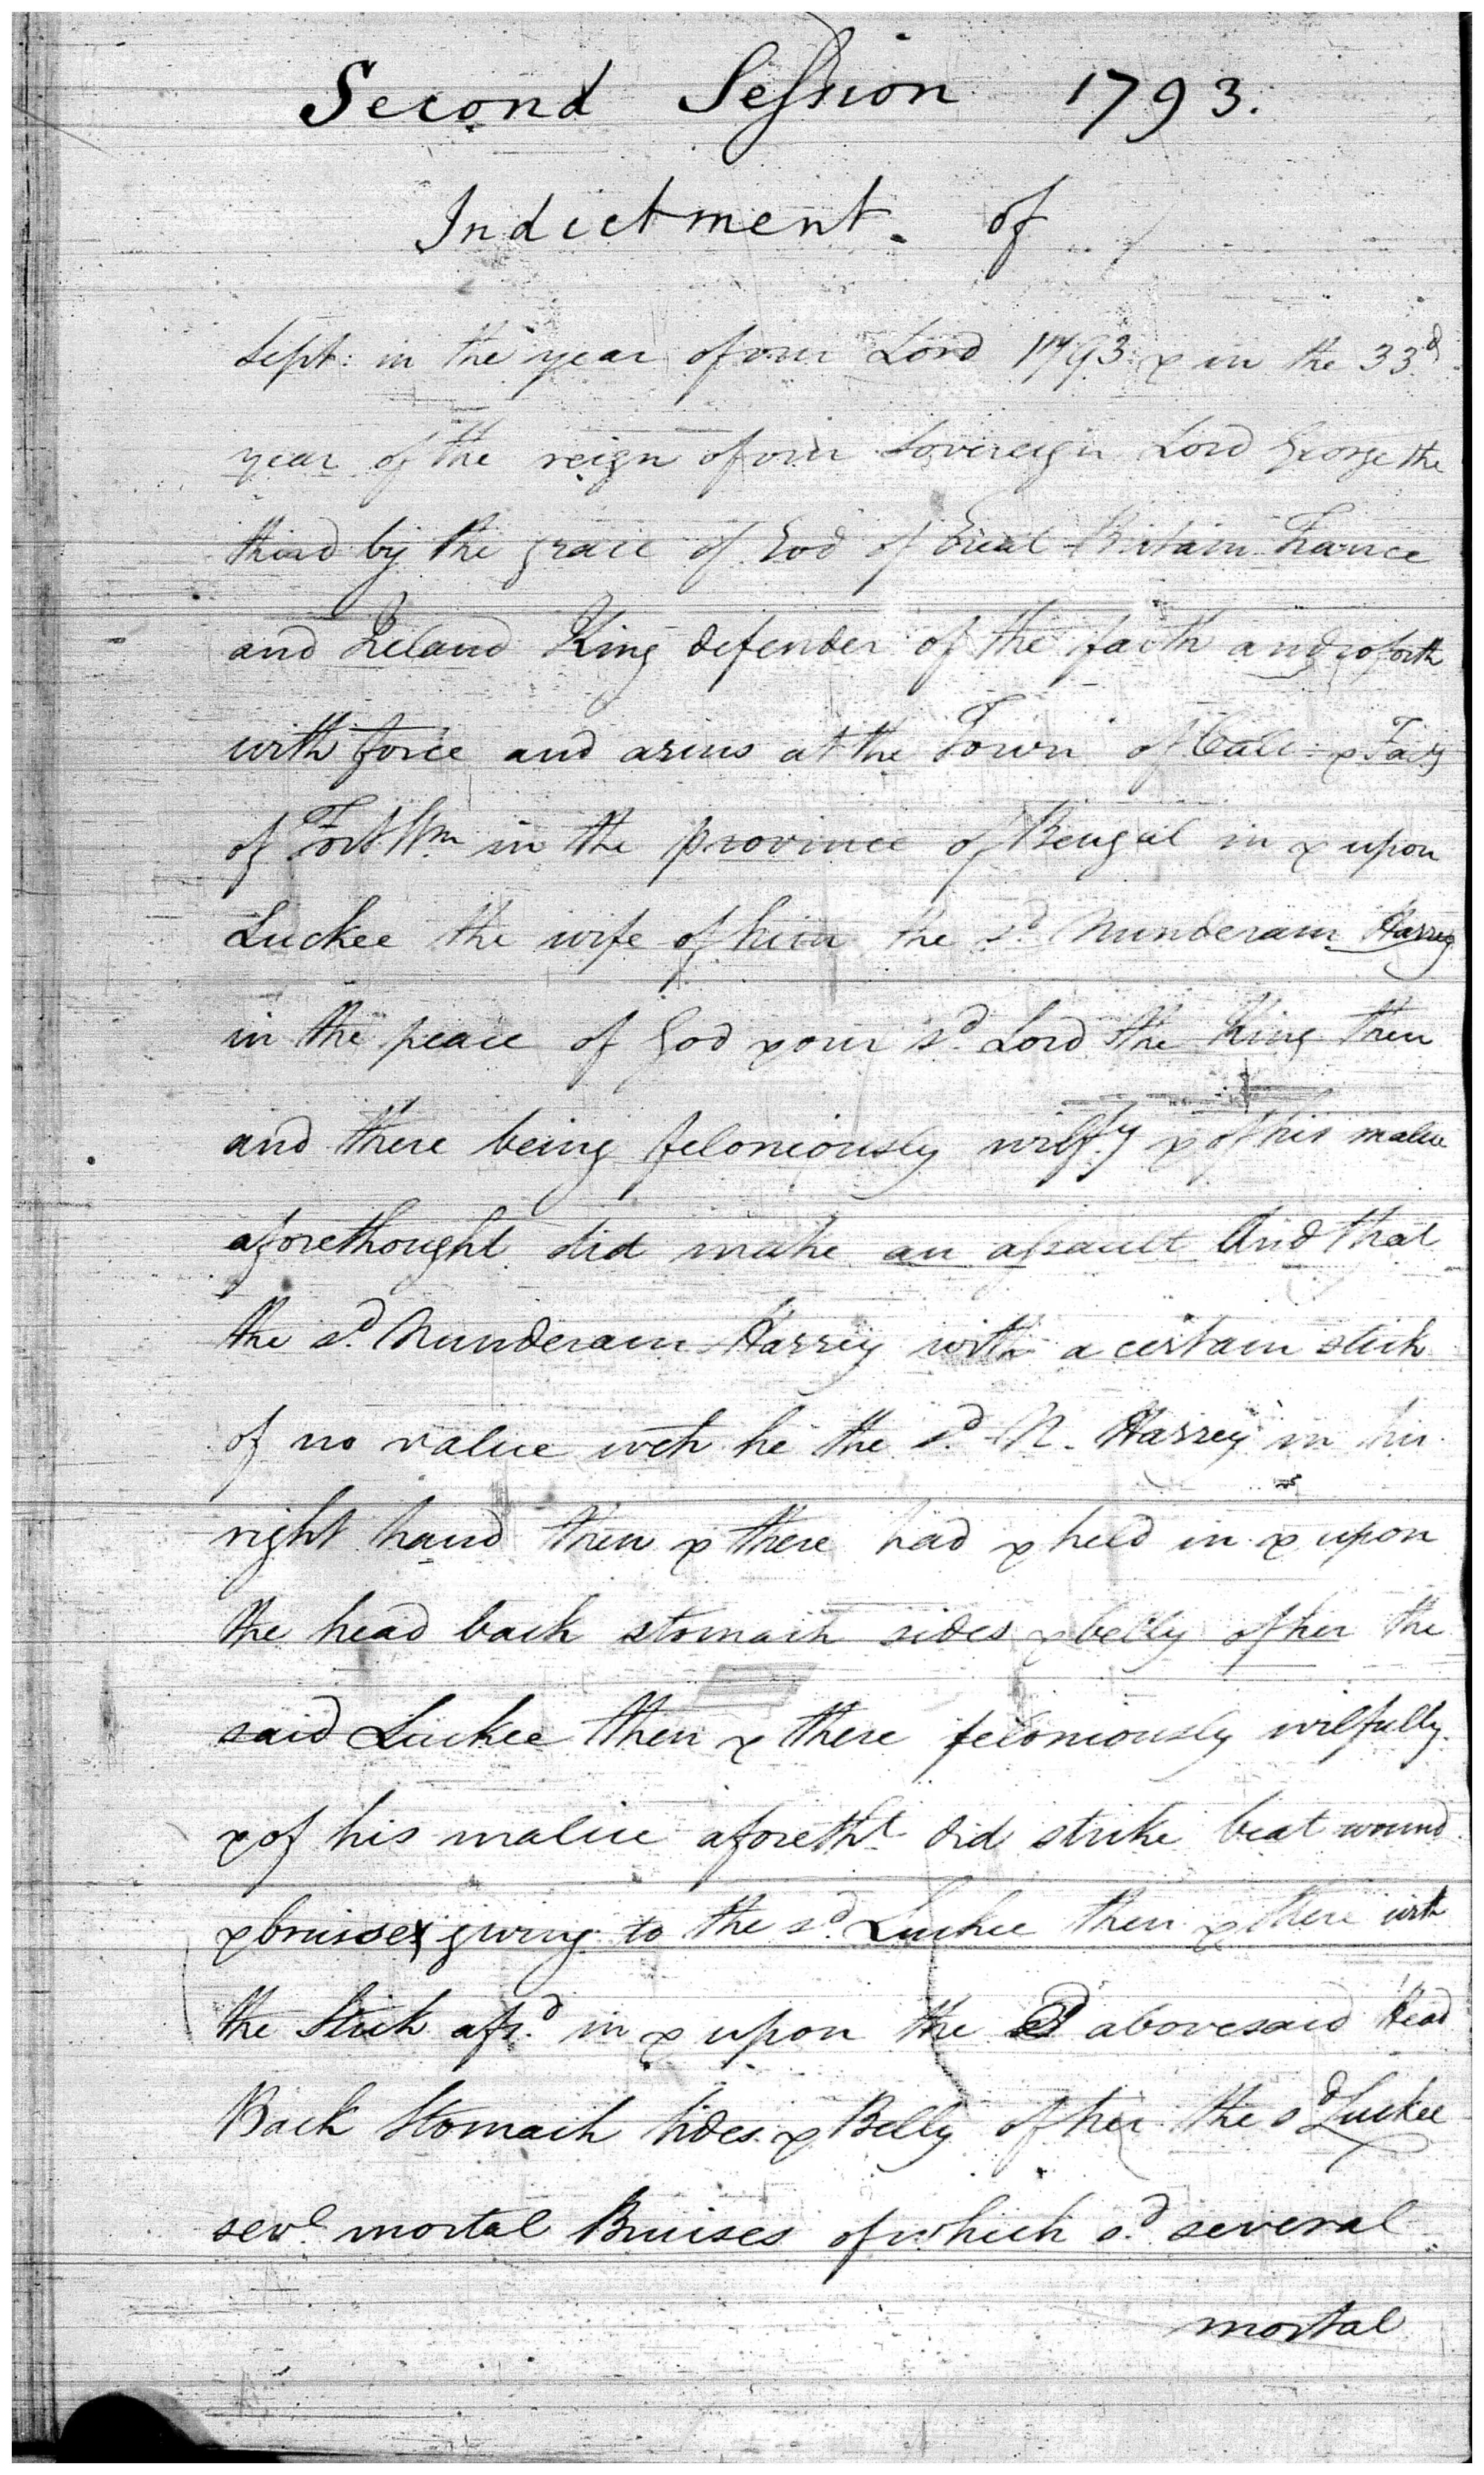 Second Session 1793.
Indictment. of
Sept: in the year of our Lord 1793 & in the 33d
year of the reign of our Sovereign Lord George the
third by the grace of God of Great Britain France
and Ireland King defender of the faith and so forth
with force and arms at the Town of Calc: & Facy
of Fort Wm in the province of Bengal in & upon
Luckee the wife of him the sd. Nunderam Harrey
in the peace of God & our sd. Lord the King then
and there being feloniously wilf.y & of his malice
aforethought did make an assault And that
the sd. Nunderam Harrey with a certain stick
of no value wch he the sd. N. Harrey in his
right hand then & there had & held in & upon
the head back stomach sides & belly of her the
said Luckee then & there feloniously wilfully
& of his malice aforetht did strike beat wound
& bruise & giving to the sd. Luckee then & there with
the Stick afsd. in & upon the abovesaid Head
Back Stomach Sides & Belly of her the sd Luckee
sevl. mortal Bruises of which sd. several
mortal